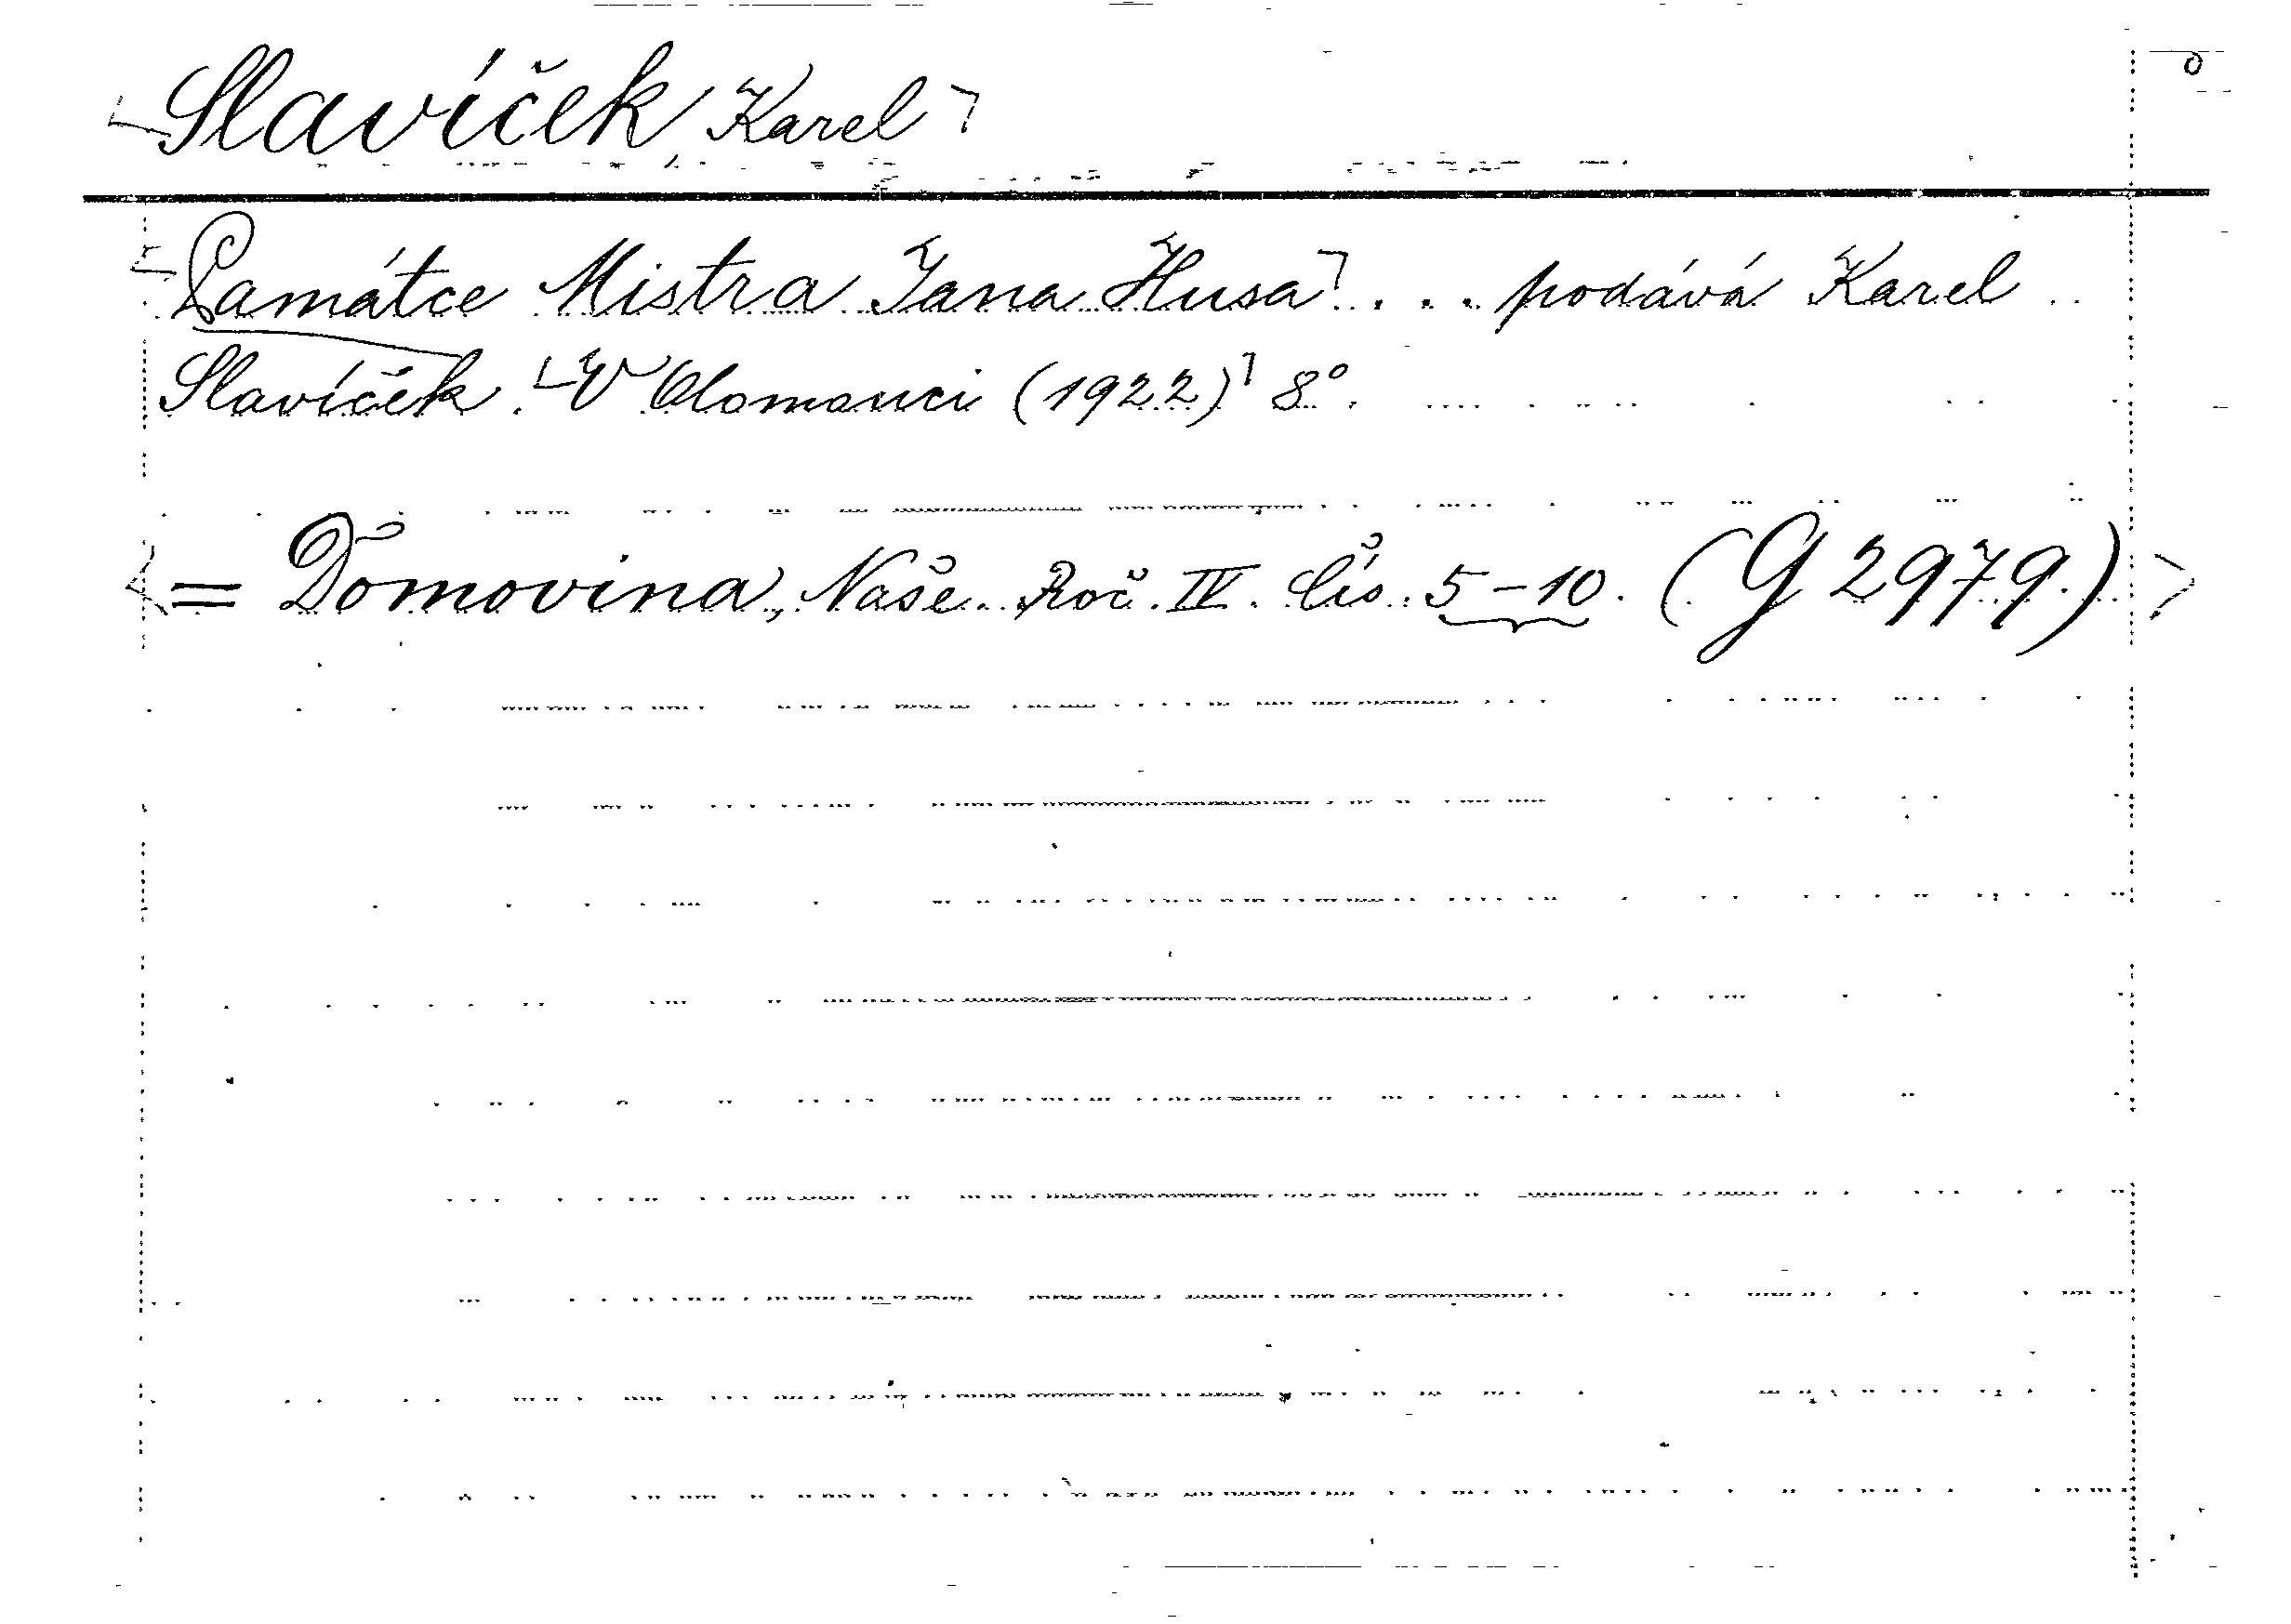 Slavíček Karel
Památce Mistra Jana Husa ... podává Karel
Slavíček. V Olomouci (1922) 8°.
= Domovina, Naše. Roč. IV. Čís. 5-10. (G 2979.)